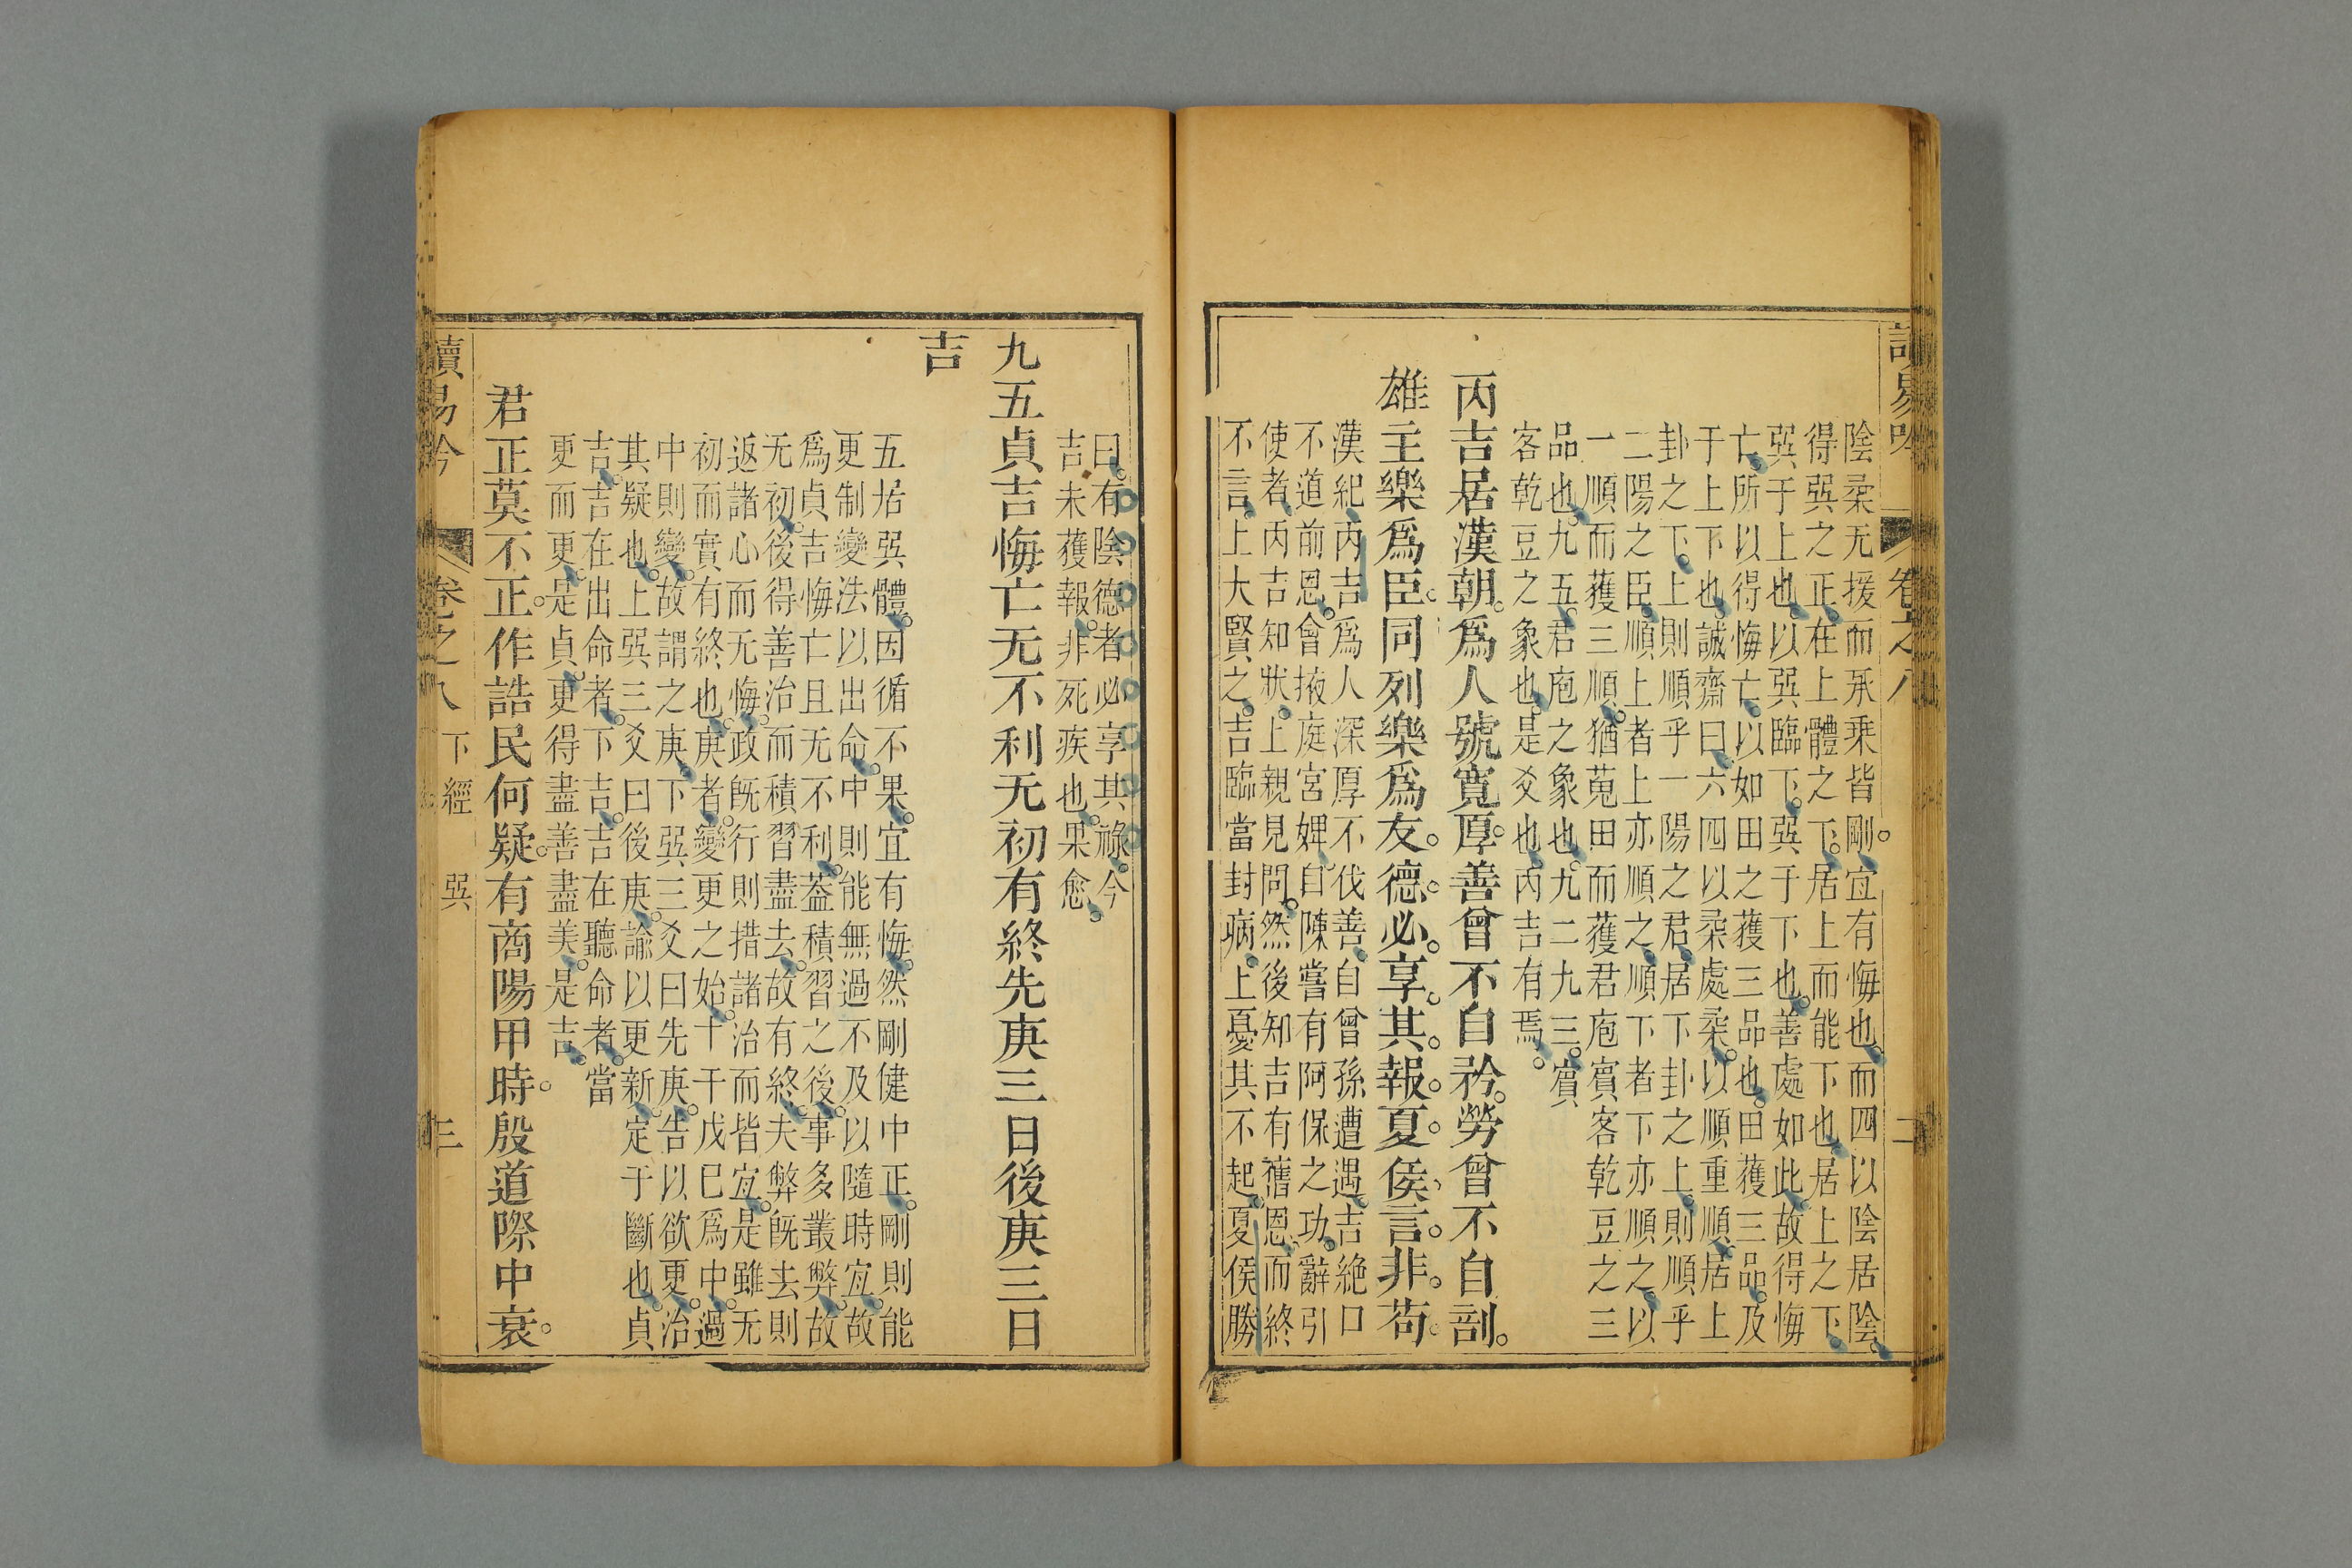 讀易吟　卷之八　二
陰柔无援而承乗皆剛宜有悔也而四以陰居陰
得巽之正在上體之下居上而能下也居上之下
巽于上也以巽臨下巽于下也善處如此故得悔
亡所以得悔亡以如田之獲三品也田獲三品及
于上下也誠齋曰六四以柔處柔以順重順居上
卦之下上則順乎一陽之君居下卦之上則順乎
二陽之臣順上者上亦順之順下者下亦順之以
一順而獲三順猶蒐田而獲君庖賓客乾豆之三
品也九五君庖之象也九二九三賓
客乾豆之象也是爻也丙吉有焉
丙吉居漢朝爲人號寬厚善曾不自矜勞曾不自剖
雄主樂爲臣同列樂爲友德必享其報夏侯言非苟
漢紀丙吉爲人深厚不伐善自曾孫遭遇吉絶口
不道前恩會掖庭宮婢自陳嘗有阿保之功辭引
使者丙吉知狀上親見問然後知吉有舊恩而終
不言上大賢之吉臨當封病上憂其不起夏侯勝
曰有陰德者必享其祿今
吉未獲報非死疾也果愈
九五貞吉悔亡无不利无初有終先庚三日後庚三日
吉
五居巽體因循不果宜有悔然剛健中正剛則能
更制變法以出命中則能無過不及以隨時宜故
爲貞吉悔亡且无不利葢積習之後事多叢弊故
无初後得善治而積習盡去故有終夫弊既去則
返諸心而无悔政既行則措諸治而皆宜是雖无
初而實有終也庚者變更之始十干戊巳爲中過
中則變故謂之庚下巽三爻曰先庚告以欲更治
其疑也上巽三爻曰後庚諭以更新定于斷也貞
吉吉在出命者下吉吉在聽命者當
更而更是貞更得盡善盡美是吉
君正莫不正作誥民何疑有商陽甲時殷道際中衰
讀易吟　卷之八　下經　巽　三